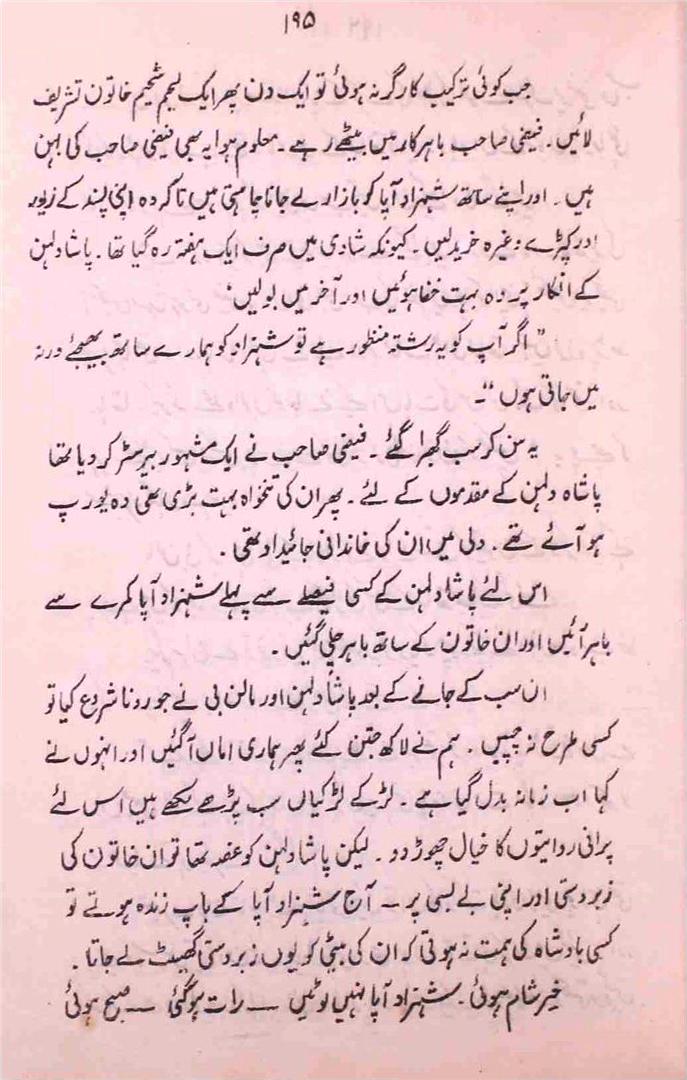 ۱۹۵
جب کوئی ترکیب کارگر نہ ہوئی تو ایک دن پھر ایک لحیم شحیم خاتون تشریف
لائیں۔ فیضی صاحب باہر کار میں بیٹھے رہے۔ معلوم ہوا یہ بھی فیضی صاحب کی بہن
ہیں۔ اور اپنے ساتھ شہزاد آپا کو بازار لے جانا چاہتی ہیں تاکہ وہ اپنی پسند کے زیور
اور کپڑے وغیرہ خریدلیں۔ کیونکہ شادی میں صرف ایک ہفتہ رہ گیا تھا۔ پاشا دلہن
کے انکار پر وہ بہت خفا ہوئیں اور آخر میں بولیں'
"اگر آپ کو یہ رشتہ منظور ہے تو شہزاد کو ہمارے ساتھ بھیجئے ورنہ
میں جاتی ہوں"۔
یہ سن کر سب گھبرا گئے۔ فیضی صاحب نے ایک مشہور بیرسٹر کر دیا تھا
پاشاہ دلہن کے مقدموں کے لئے۔ پھر ان کی تنخواہ بہت بڑی تھی وہ یورپ
ہو آئے تھے۔ دلی میں ان کی خاندانی جائیداد تھی۔
اس لئے پاشا دلہن کے کسی فیصلے سے پہلے شہزاد آپا کمرے سے
باہر آئیں اور ان خاتون کے ساتھ باہر چلی گئیں۔
ان سب کے جانے کے بعد پاشا دلہن اور مالن بی نے جو رونا شروع کیا تو
کسی طرح نہ چپیں۔ ہم نے لاکھ جتن کئے پھر ہماری اماں آگئیں اور انہوں نے
کہا اب زمانہ بدل گیا ہے۔ لڑکے لڑکیاں سب پڑھے لکھے ہیں اس لئے
پرانی روایتوں کا خیال چھوڑ دو۔ لیکن پاشا دلہن کو غصہ تھا تو ان خاتون کی
زبردستی اور اپنی بے بسی پر — آج شہزاد آپا کے باپ زندہ ہوتے تو
کسی بادشاہ کی ہمت نہ ہوتی کہ ان کی بیٹی کو یوں زبردستی گھسیٹ لے جاتا۔
خیر شام ہوئی۔ شہزاد آپا نہیں لوٹیں — رات ہوگئی — صبح ہوئی